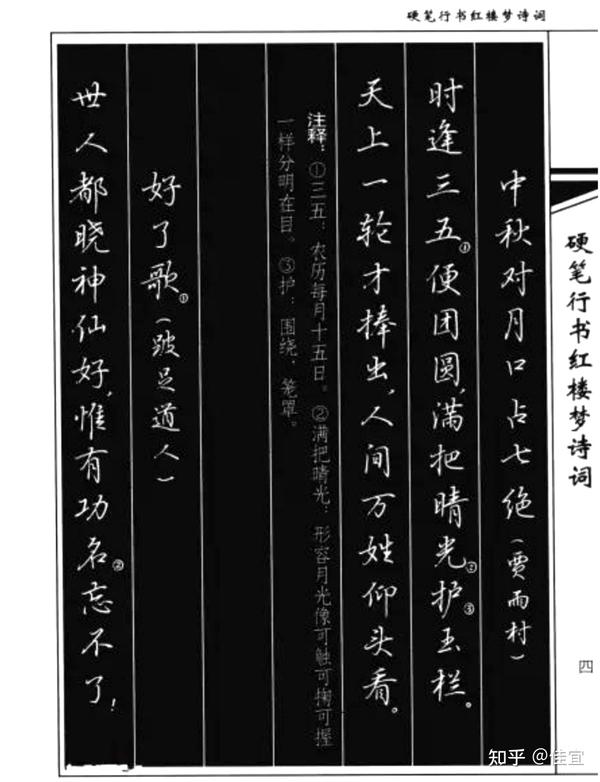 硬笔行书红楼梦诗词
硬笔行书红楼梦诗词
四
中秋对月口占七绝(贾雨村)
时逢三五①便团圆,满把晴光②护③玉栏。
天上一轮才捧出,人间万姓仰头看。
注释:①三五:农历每月十五日。②满把晴光:形容月光像可触可掬可握
一样分明在目。③护:围绕,笼罩。
好了歌①(跛足道人)
世人都晓神仙好,惟有功名②忘不了!
知乎 @佳宜